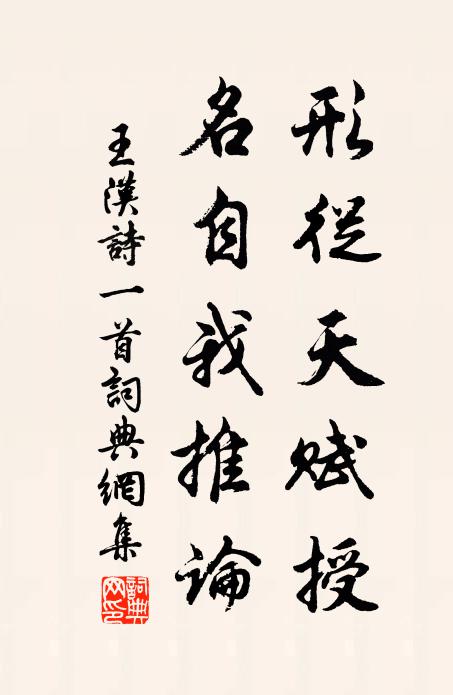 形從天賦授
名自我推論
王漢詩一首詞典網集
詞典網印